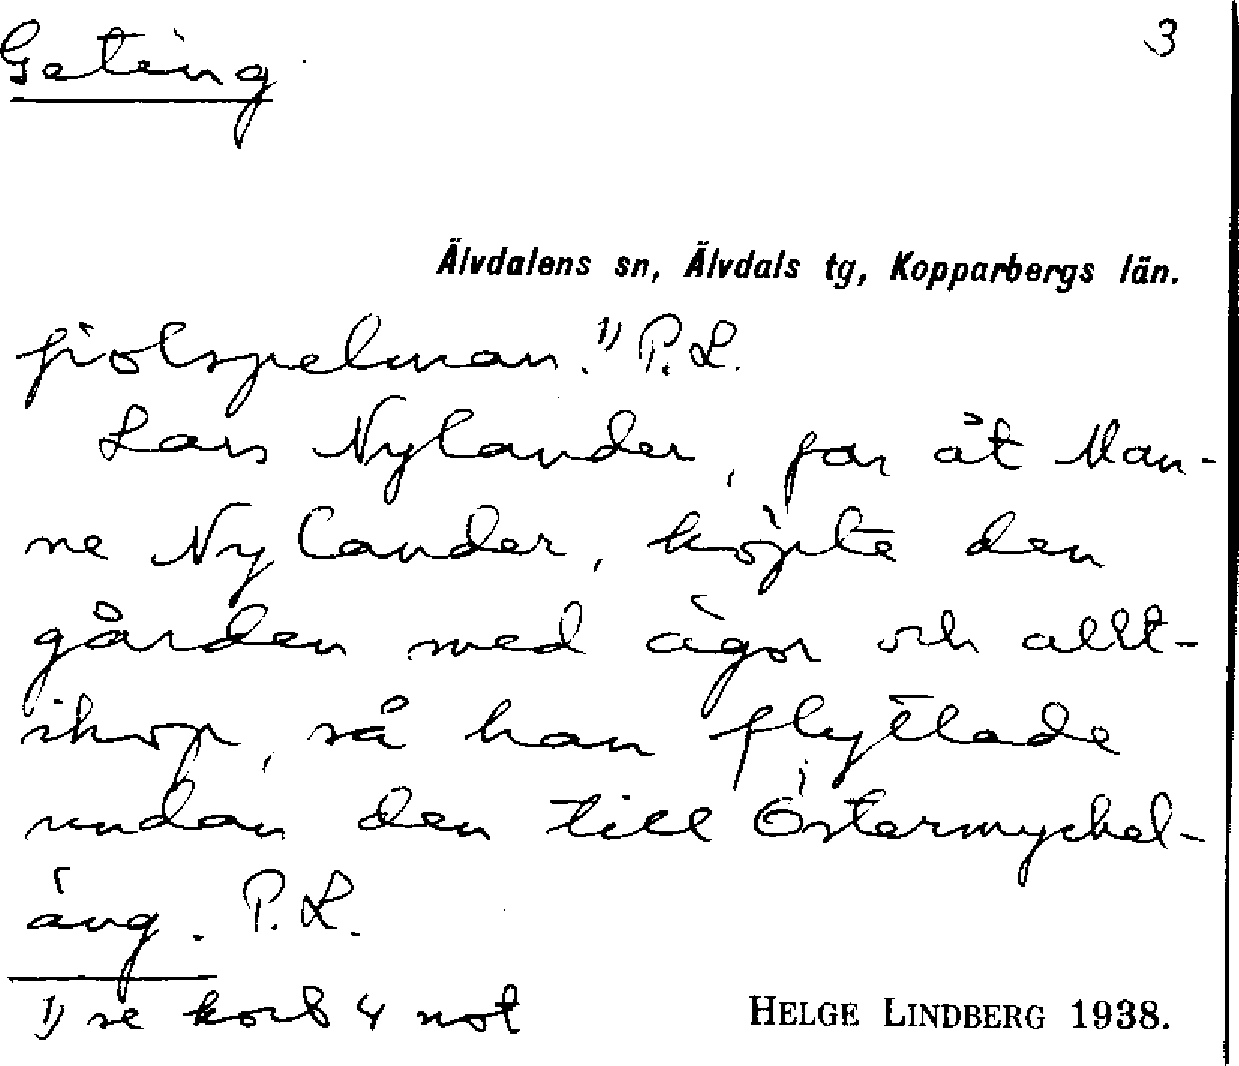 Geting
3
Älvdalens sn, Älvdals tg, Kopparbergs län.
fiolspelman.¹⁾ P. L.
Lars Nylander, far åt Man-
ne Nylander, köpte den
gården med ägor och allt-
ihop, så han flyttade
undan den till Östermyckel-
äng. P. L.
¹⁾ se kort 4 not
HELGE LINDBERG 1938.